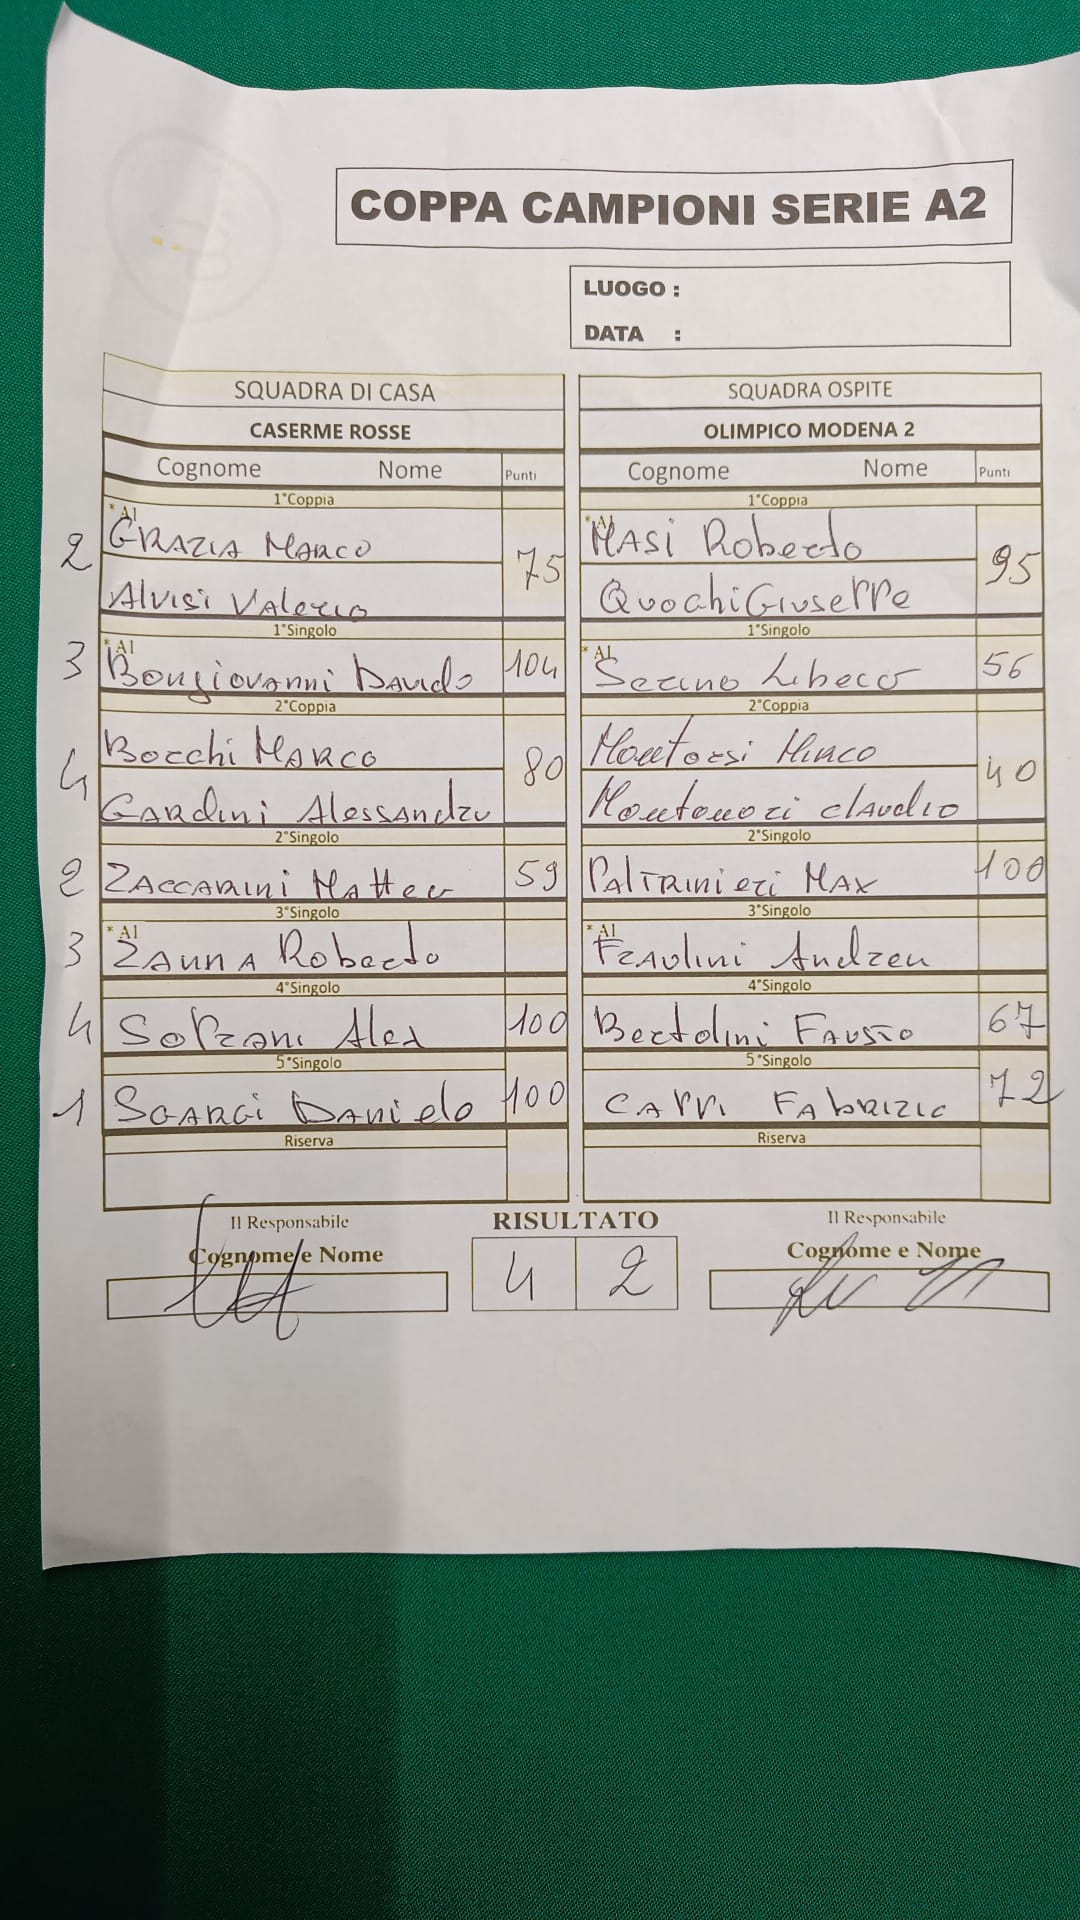 COPPA CAMPIONI SERIE A2
LUOGO :
DATA :
SQUADRA DI CASA SQUADRA OSPITE
CASERME ROSSE OLIMPICO MODENA 2
Cognome Nome Punti Cognome Nome Punti
1°Coppia 1°Coppia
* Al * Al
2 GRAZIA MARCO 75 MASI Roberto 95
Alvisi Valerio Quochi Giuseppe
1°Singolo 1°Singolo
* Al * Al
3 Bongiovanni Davide 104 Serino Libero 56
2°Coppia 2°Coppia
4 Bocchi Marco 80 Montorsi Mirco 40
Gardini Alessandro Claudio
2°Singolo 2°Singolo
2 ZACCARINI Matteo 59 Paltrinieri MAX 100
3°Singolo 3°Singolo
* Al * Al
3 ZAnnA Roberto Fraulini Andrea
4°Singolo 4°Singolo
4 Alex 100 Bertolini Fausto 67
5°Singolo 5°Singolo
1 Sgarci Danielo 100 CAPPI FAbrizio 72
Riserva Riserva
Il Responsabile RISULTATO Il Responsabile
Cognome e Nome 4 2 Cognome e Nome